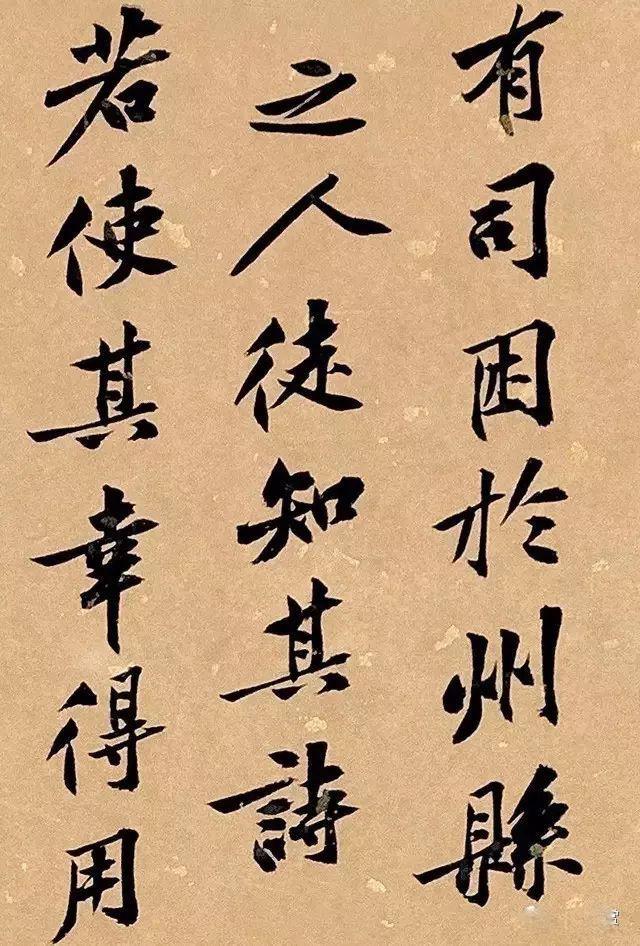 有司困於州縣
之人徒知其詩
若使其幸得用